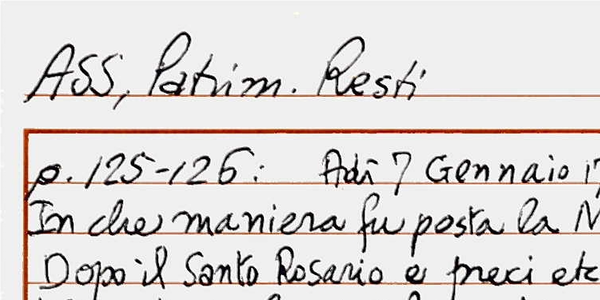 ASS, Patrim. Resti
p. 125-126: Adì 7 Gennaio 17
In che maniera fu posta la
Dopo il Santo Rosario e preci etc